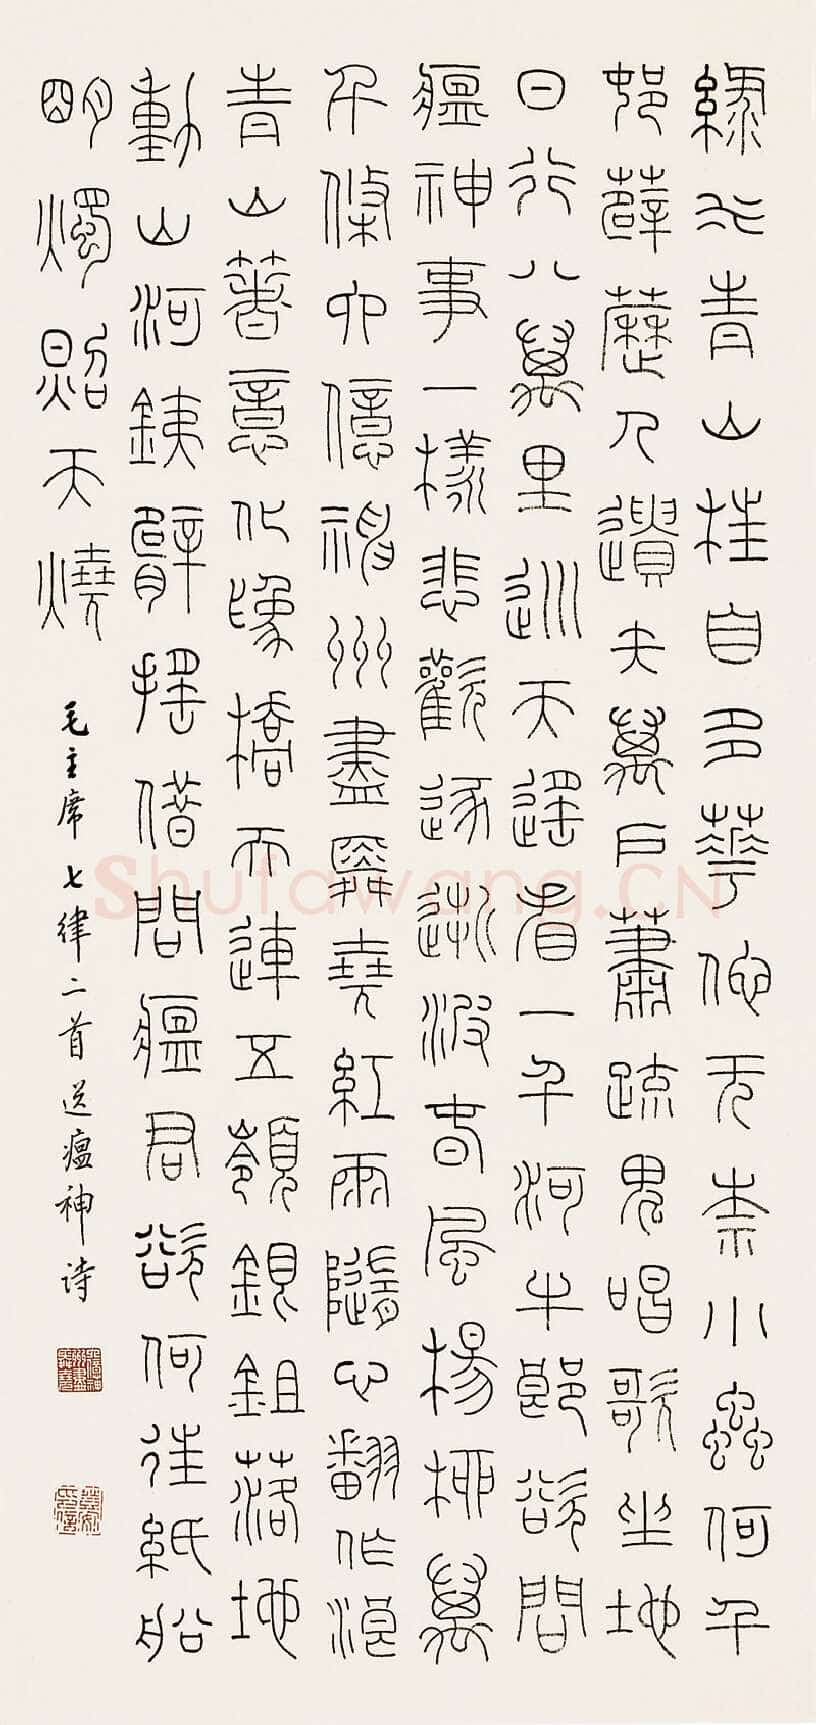 緑水青山枉自多華佗无柰小蟲何千
邨薜荔人遺矢萬戶蕭疏鬼唱歌坐地
日行八萬里巡天遙看一千河牛郎欲問
瘟神事一樣悲歡逐逝波春風楊柳萬
千條六億神州盡舜堯紅雨隨心翻作浪
青山著意化為橋天連五嶺銀鉏落地
動山河鐵臂搖借問瘟君欲何往紙船
明燭照天燒
毛主席七律二首送瘟神诗
Shufawang.CN